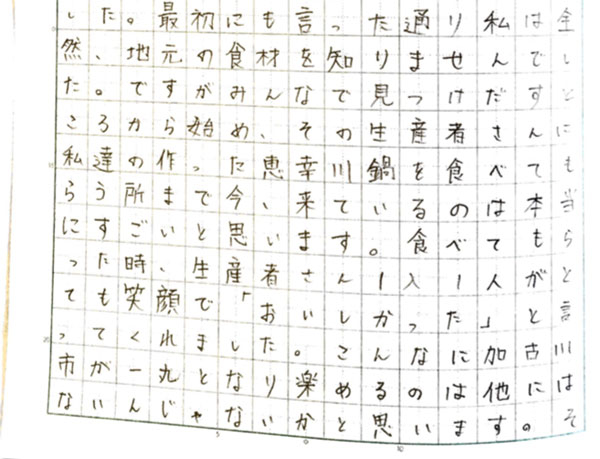 した。最初にも言った通り私は全
然、地元の食材を知りませんでし
た。ですがみんなで見つけだすと
ころから始め、その生産者さんに
私達の作った恵幸川鍋を食べても
らう所まで今、来ているのは本当
にすごいと思います。食べてもら
った時、生産者さん一人一人がと
っても笑顔で「おいしかった」と言
ってくれました。こんなに加古川
市が一丸となり楽めるのは他には
ないんじゃないかと思います。そ